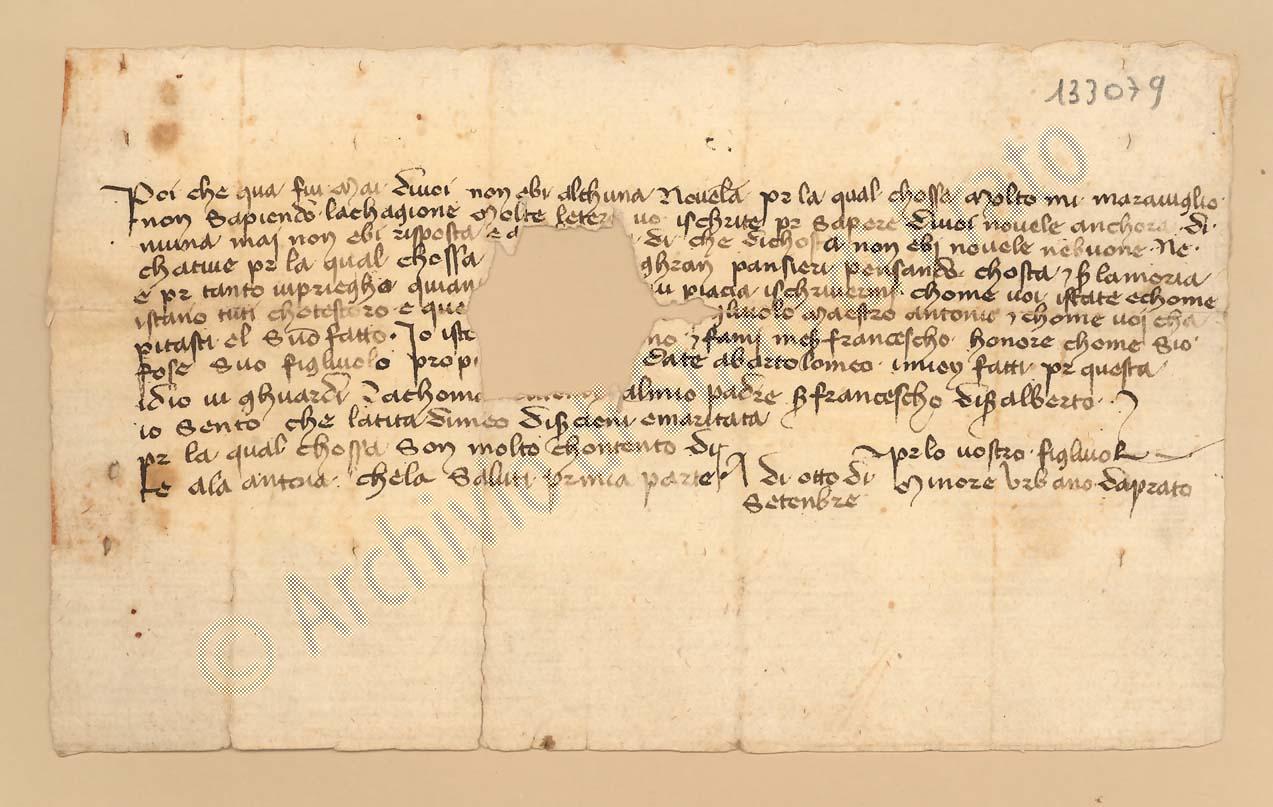 133079
Poi che qua fui mai di voi non ebi alchuna novela pr la qual chossa molto mi maraviglio
non sapiendo lachagione molte letere vo ischrite pr sapere di voi novele anchora di
niuna mai non ebi risposta e di che dichosta non ebi novele ne buone ne
chative pr la qual chossa ghran pansieri pensando chosta lamoria
e pr tanto vi priegho quan piacia ischrivermi chome voi istate e chome
istano tuti chotestoro e que maestro antonio chome voi cha
pitasti el suo fatto Io iste no fami francescho honore chome sio
fose suo figluolo prop date abartolomeo i miey fatti pr questa
idio vi ghuardi al mio padre francescho di alberto
io sento che latita dimeo di emaritata
pr la qual chossa son molto chontento di
te ala antonia chela saluti prmia parte A di otto di
setenbre
prlo vostro figluol
minore urbano daprato
© Archivio di Stato